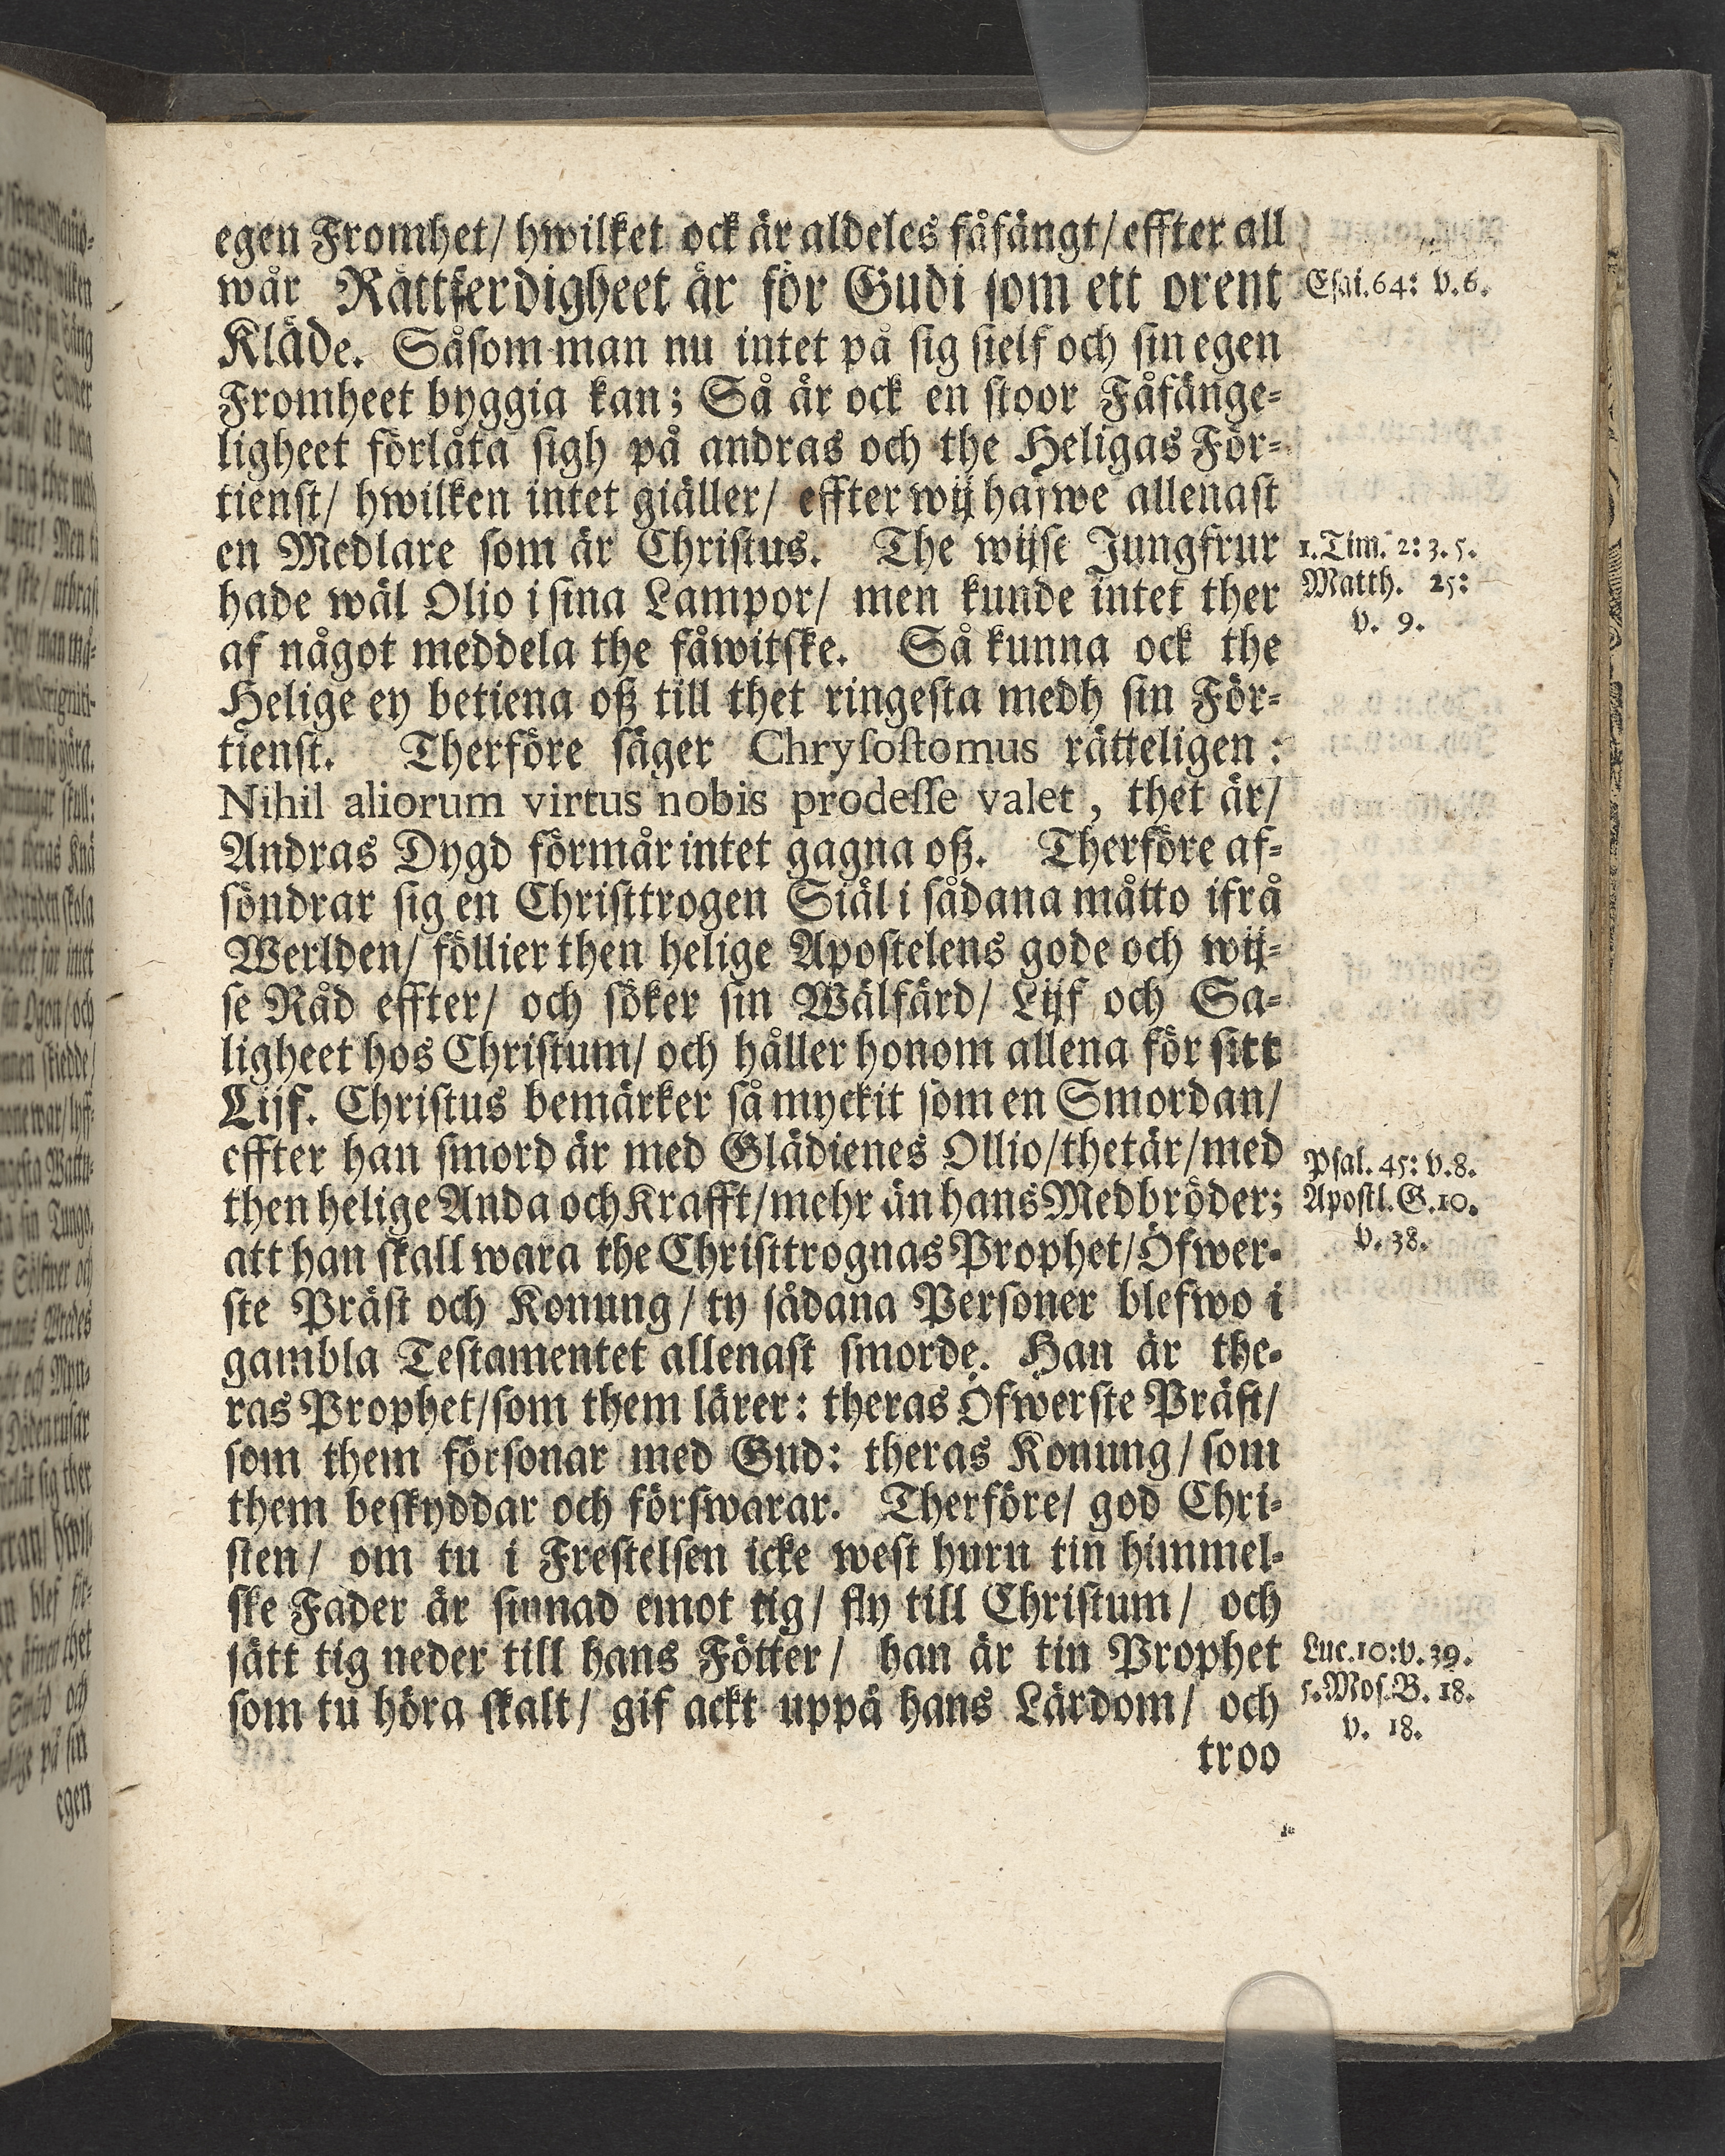 egen Fromhet/ hwilket ock är aldeles fåfängt/ effter all
wår Rättferdigheet är för Gudi som ett orent
Kläde. Såsom man nu intet på sig sielf och sin egen
Fromheet byggia kan; Så är ock en stoor Fåfänge-
ligheet förlåta sigh på andras och the Heligas För-
tienst/ hwilken intet giäller/ effter wij hafwe allenast
en Medlare som är Christus. The wijse Jungfrur
hade wäl Olio i sina Lampor/ men kunde intet ther
af något meddela the fåwitske. Så kunna ock the
Helige ey betiena oß till thet ringesta medh sin För-
tienst. Therföre säger Chrysostomus rätteligen:
Nihil aliorum virtus nobis prodesse valet, thet är/
Andras Dygd förmår intet gagna oß. Therföre af-
söndrar sig en Christtrogen Siäl i sådana måtto ifrå
Werlden/ föllier then helige Apostelens gode och wij-
se Råd effter/ och söker sin Wälfärd/ Lijf och Sa-
ligheet hos Christum/ och håller honom allena för sitt
Lijf. Christus bemärker så myckit som en Smordan/
effter han smord är med Glädienes Ollio/ thet är/ med
then helige Anda och Krafft/ mehr än hans Medbröder;
att han skall wara the Christtrognas Prophet/ Öfwer-
ste Präst och Konung/ ty sådana Personer blefwo i
gambla Testamentet allenast smorde. Han är the-
ras Prophet/ som them lärer: theras Öfwerste Präst/
som them försonar med Gud: theras Konung/ som
them beskyddar och förswarar. Therföre/ god Chri-
sten/ om tu i Frestelsen icke west huru tin himmel-
ske Fader är sinnad emot tig/ fly till Christum/ och
sätt tig neder till hans Fötter/ han är tin Prophet
som tu höra skalt/ gif ackt uppå hans Lärdom/ och
troo
Esai. 64: v. 6.
1. Tim. 2: 3. 5.
Matth. 25:
v. 9.
Psal. 45: v. 8.
Apostl. G. 10.
v. 38.
Luc. 10: v. 39.
5. Mos. B. 18.
v. 18.
egen